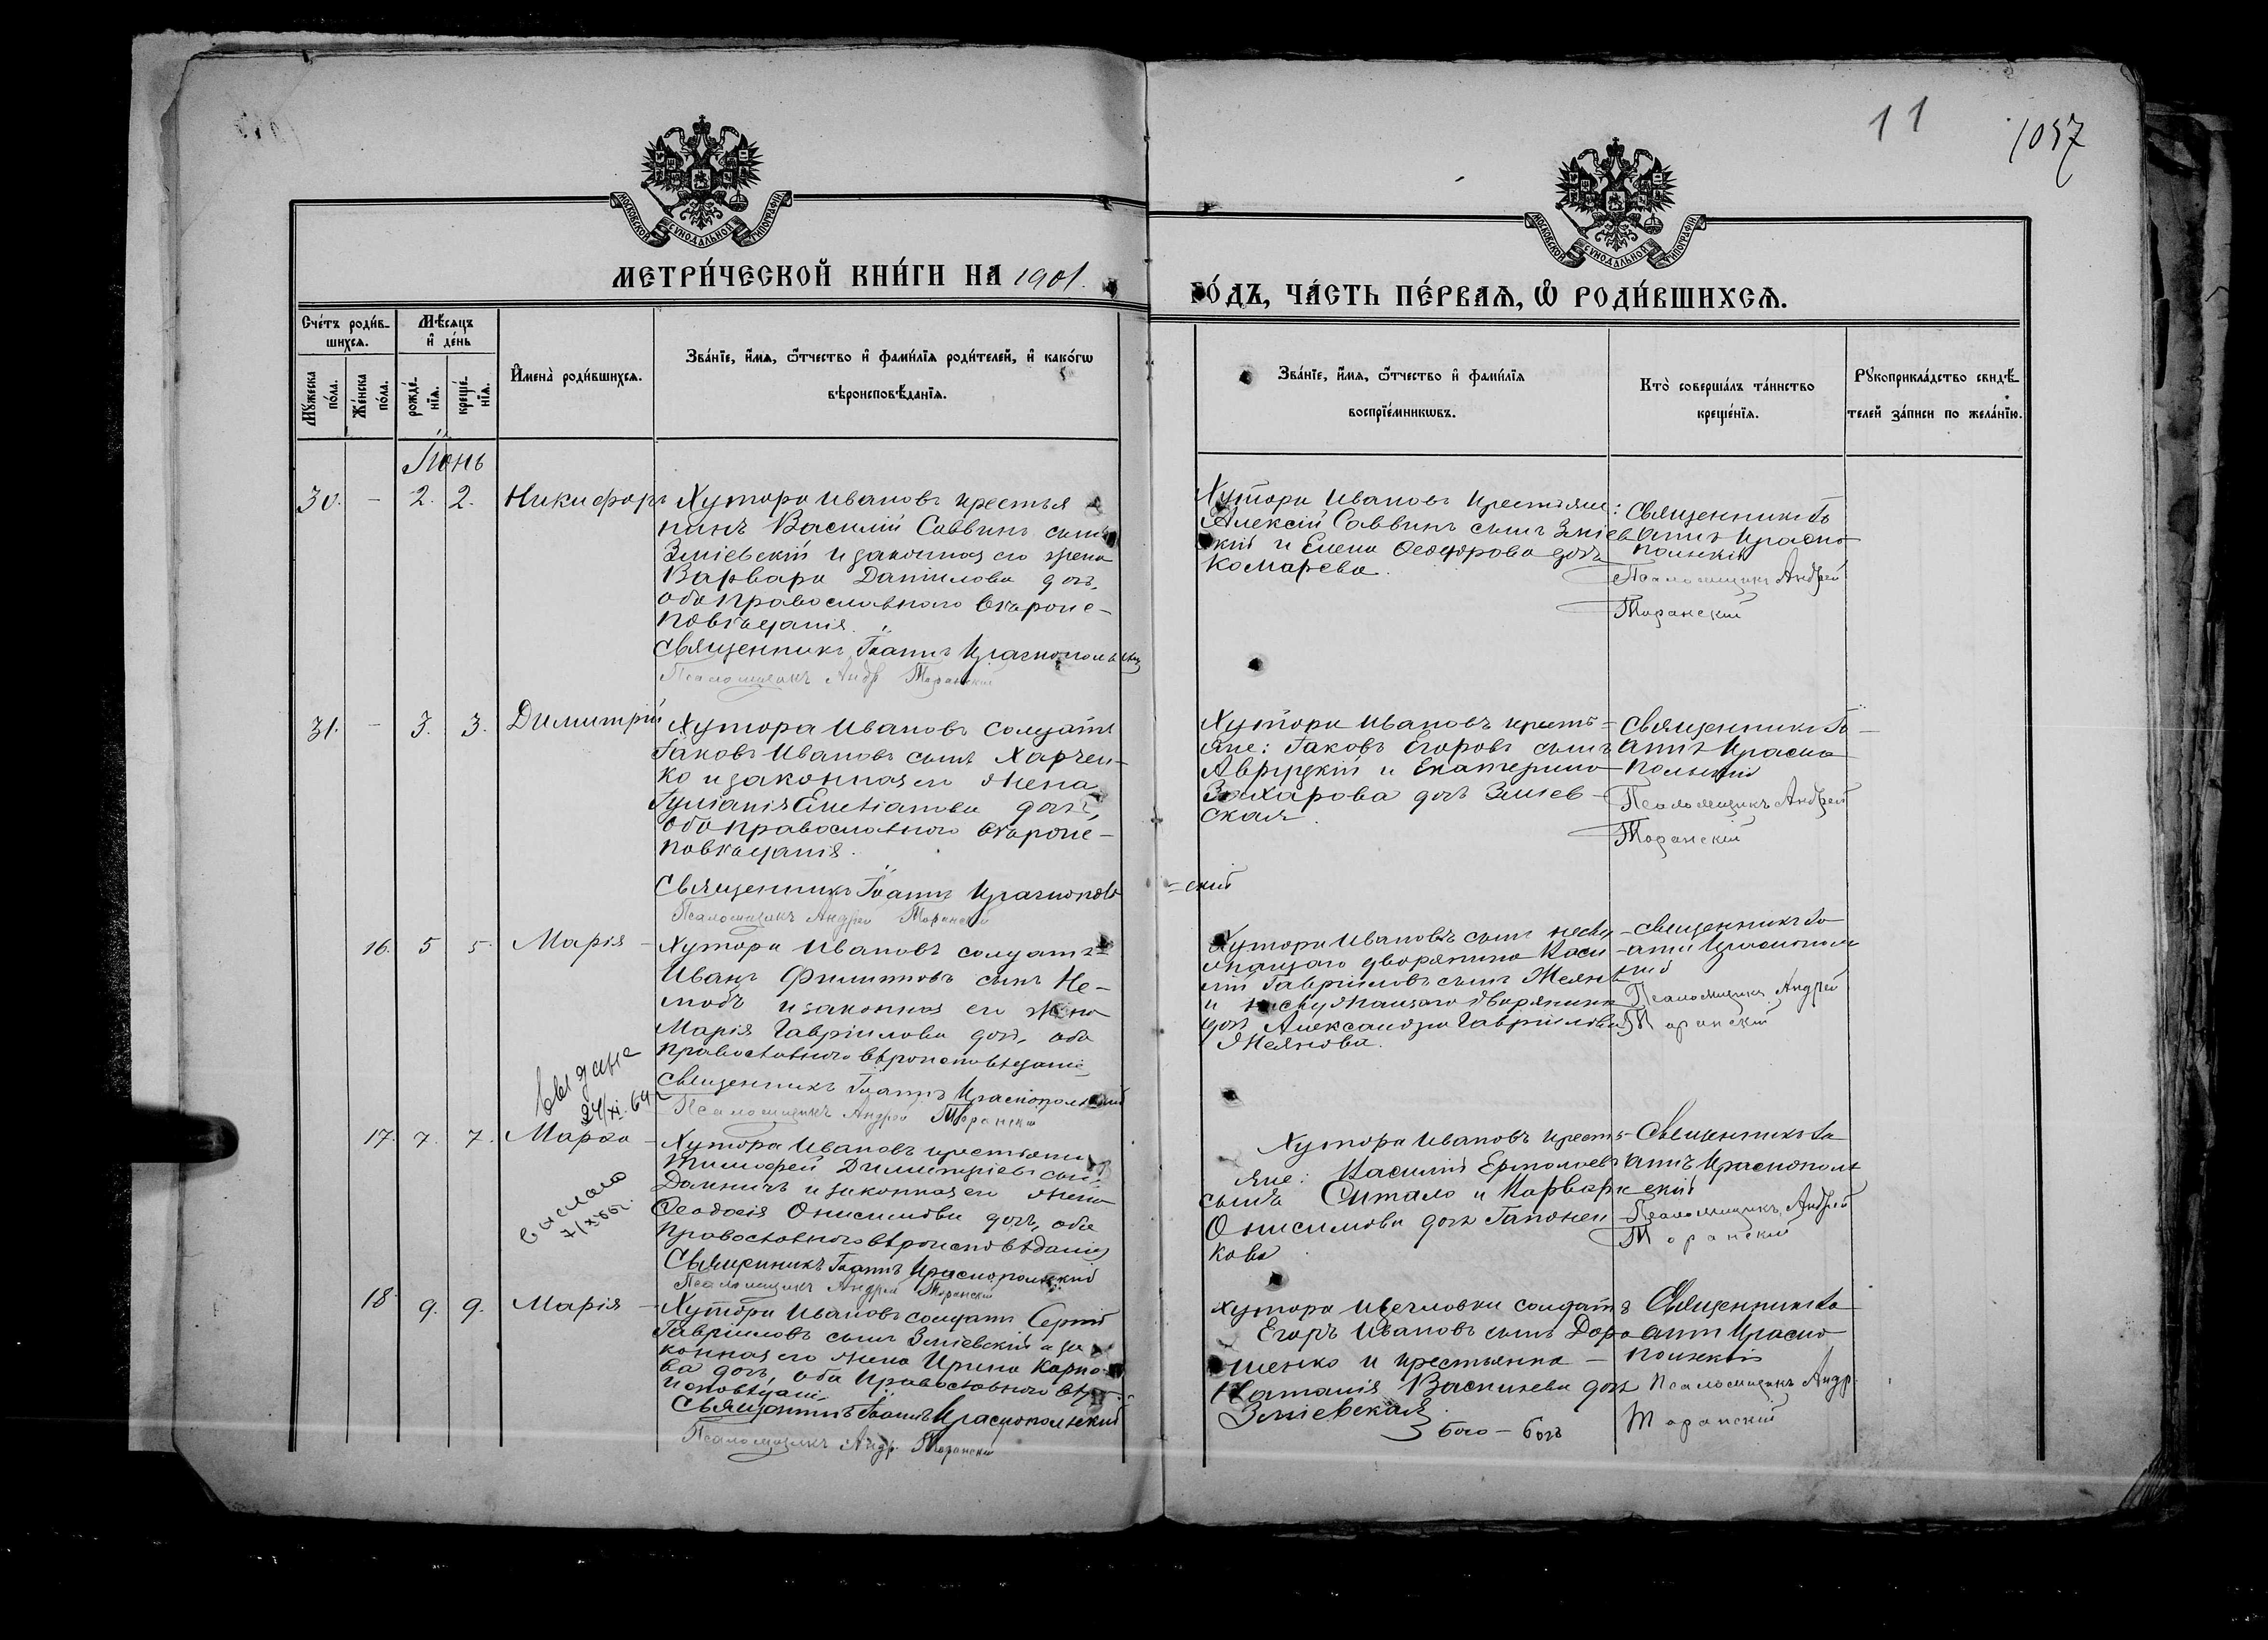 11
1057
МОСКОВСКОЙ СѴНОДАЛЬНОЙ ТИПОГРАФІИ
МОСКОВСКОЙ СѴНОДАЛЬНОЙ ТИПОГРАФІИ
МЕТРИ́ЧЕСКОЙ КНИ́ГИ НА 1901.
ГО́ДЪ, ЧА́СТЬ ПЕ́РВАѦ, Ѡ҆ РОДИ́ВШИХСѦ.
Сче́тъ роди́в-
шихсѧ.
Мѣ́сѧцъ
и҆ де́нь
Мꙋ́жеска по́ла.
Же́нска по́ла.
рожде́-нїѧ.
креще́-нїѧ.
И҆мена̀ роди́вшихсѧ.
Зва́нїе, и҆́мѧ, ѻ҆́тчество и҆ фами́лїѧ роди́телей, и҆ како́гѡ
вѣроисповѣ́данїѧ.
Зва́нїе, и҆́мѧ, ѻ҆́тчество и҆ фами́лїѧ
воспрїе́мникѡвъ.
Кто̀ соверша́лъ та́инство
креще́нїѧ.
Рꙋкоприкла́дство свидѣ́-
телей за́писи по жела́нїю.
Іюнь
30. - 2. 2. Никифоръ
Хутора Ивановъ крестья
нинъ Василій Саввинъ сынъ
Зміевскій и законная его жена
Варвара Даніилова дочь,
оба православнаго вѣроис-
повѣданія.
Священникъ Іоаннъ Краснопольскій
Псаломщикъ Андр Торанскій
Хутора Ивановъ крестьяне:
Алексій Саввинъ сынъ Зміев
скій и Елена Феодорова дочь
Комарева.
Священникъ Іо
аннъ Красно
польскій
Псаломщикъ Андрей
Торанскій
31. - 3. 3. Димитрій
Хутора Ивановъ солдатъ
Іаковъ Ивановъ сынъ Харчен-
ко и законная его жена
Іуліанія дочь,
оба православнаго вѣроис-
повѣданія.
Священникъ Іоаннъ Краснополь
-скій
Псаломщикъ Андрей Торанскій
Хутора Ивановъ кресть-
яне: Іаковъ Егоровъ сынъ
и Екатерина
Захарова дочь Зміев-
ская.
Священникъ Іо-
аннъ Красно
польскій
Псаломщикъ Андрей
Торанскій
16. 5 5. Марія
Хутора Ивановъ солдатъ
Иванъ Филиповъ сынъ Не-
и законная его жена
Марія Гавріилова дочь, оба
православнаго вѣроисповѣданія
Священникъ Іоаннъ Краснопольскій
Псаломщикъ Андрей Торанскій
Хутора Ивановъ сынъ неслу
жащаго дворянина Васи
лій Гавріиловъ сынъ
и неслужащаго дворянина
дочь Александра Гавріилова
Священникъ Іо
аннъ Краснополь
скій
Псаломщикъ Андрей
Торанскій
выдано
24/XI.64
17. 7. 7. Марѳа
Хутора Ивановъ крестьянинъ
Тимофей Димитріевъ сынъ
и законная его жена
Феодосія Онисимова дочь, оба
православнаго вѣроисповѣданія
Священникъ Іоаннъ Краснопольскій
Псаломщикъ Андрей Торанскій
Хутора Ивановъ кресть-
яне: Василій Ермолаевъ
сынъ Ситало и Варвара
Онисимова дочь Гапонен
кова
Священникъ Іо
аннъ Краснополь
скій
Псаломщикъ Андрей
Торанскій
18 9. 9. Марія
Хутора Ивановъ солдатъ Сергій
Гавріиловъ сынъ Зміевскій и за
конная его жена Ирина Карпо-
ва дочь, оба православнаго вѣро
исповѣданія
Священникъ Іоаннъ Краснопольскій
Псаломщикъ Андр. Торанскій
Хутора солдатъ
Егоръ Ивановъ сынъ Доро
шенко и крестьянка -
Наталія Васильева дочь
Зміевская.
Священникъ Іо
аннъ Красно
польскій
Псаломщикъ Андр.
Торанскій